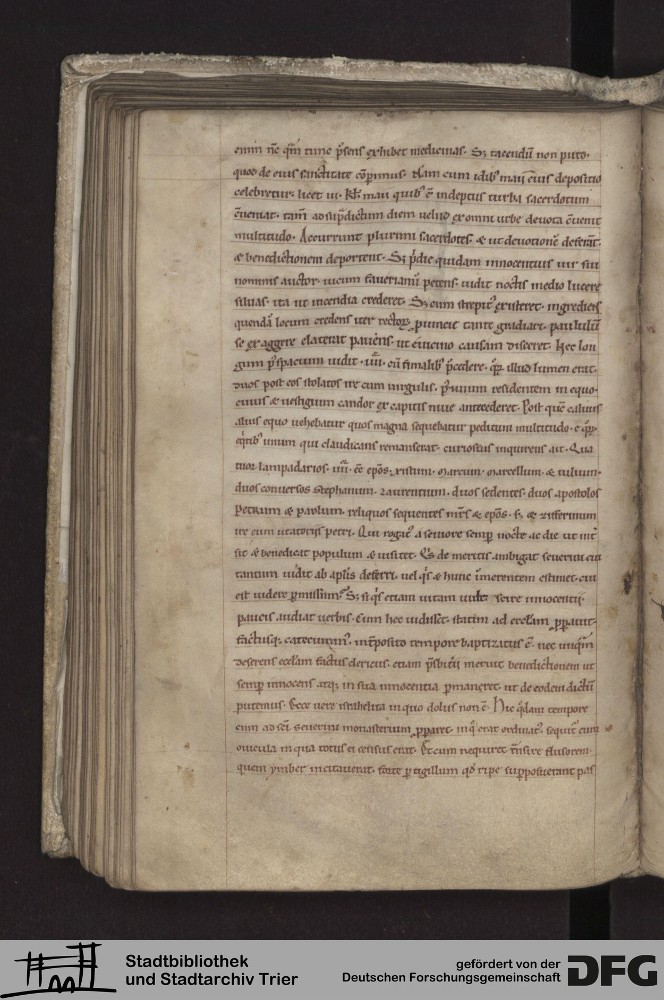 enim nc̄ qm̄ tunc p̄sens exhibet medicinas. Sꝫ tacendū non puto.
quod de eius sanctitate cōp̄imus. Nam cum idibꝰ maii eius depositio
celebretur. licet iii. kl̄. maii quibꝰ ē indeptus turba sacerdotum
cueniat. tam̄ ad sup̄dictum diem uelud ex omni urbe deuota cūenit
multitudo. Accurrunt plurimi sacerdotes. & ut deuotionē deferāt.
& benedictionem deportent. Sꝫ p̄die quidam innocentius uir sui
nominis auctor. uicum seuerianū petens. uidit noctis medio lucere
siluas. ita ut incendia crederet. Sꝫ cum strepitꝰ existeret. ingredieīs
quendā locum credens iter
se ex aggere elaterat pauens. ut euicino causam disceret. Hec lon
gum p̄ spacium uidit. iiii. cū fimalibꝰ p̄cedere. quoꝝ illud lumen erat.
duos post eos stolatos ire cum uirgulis. p̄ unum residentem in equo.
cuius & uestigium candor ex capitis niue antecederet. Post quē caluus
alius equo uehebatur quos magna sequebatur peditum multitudo. e quoꝝ
unum qui claudicans remanserat. curiosius inquirens ait. Qua
tuor lampadarios. iiii. ēē ep̄os. ristum. marcum. marcellum. & iulium.
duos conuersos stephanum. laurentium. duos sedentes. duos apostolos
petrum & paulum. reliquos sequentes mr̄s & ep̄os. & rufferinum
ire cum uiatoriis petri. Qui rogatꝰ a seniore semp̄ nocte ac die ut int̄
sit & benedicat populum & uisitet. Qis de meritis ambigat seuerini cui
tantum uidit ab apl̄is deferri. uel qis & hunc īmerentem estimet. cui
est uidere p̄missum. Sꝫ si qis etiam uitam uult scire innocentii.
paucis audiat uerbis. Cum hec uidisset. statim ad eccl̄am properauit.
factusqꝫ catecuminꝰ. int̄posito tempore baptizatus ē. nec unqm̄
deserens eccl̄am factus clericus. etiam p̄sbit̄ii meruit benedictionem ut
semp̄ innocens atqꝫ in sua innocentia p̄maneret. ut de eodem dictū
putemus. Ecce uere israhelita in quo dolus non ē. Hic qdam tempore
cum ad sc̄i seuerini monasterium pp̄aret. in qo erat ordinatꝰ. sequit̄ eum
ouicula in qua totus ei census erat. Et cum nequiret tn̄sire flusorem.
quem ymber incitauerat. forte p̄ tigillum qd̄ ripe sup̄posuerant pas
Stadtbibliothek
und Stadtarchiv Trier
gefördert von der
Deutschen Forschungsgemeinschaft
DFG